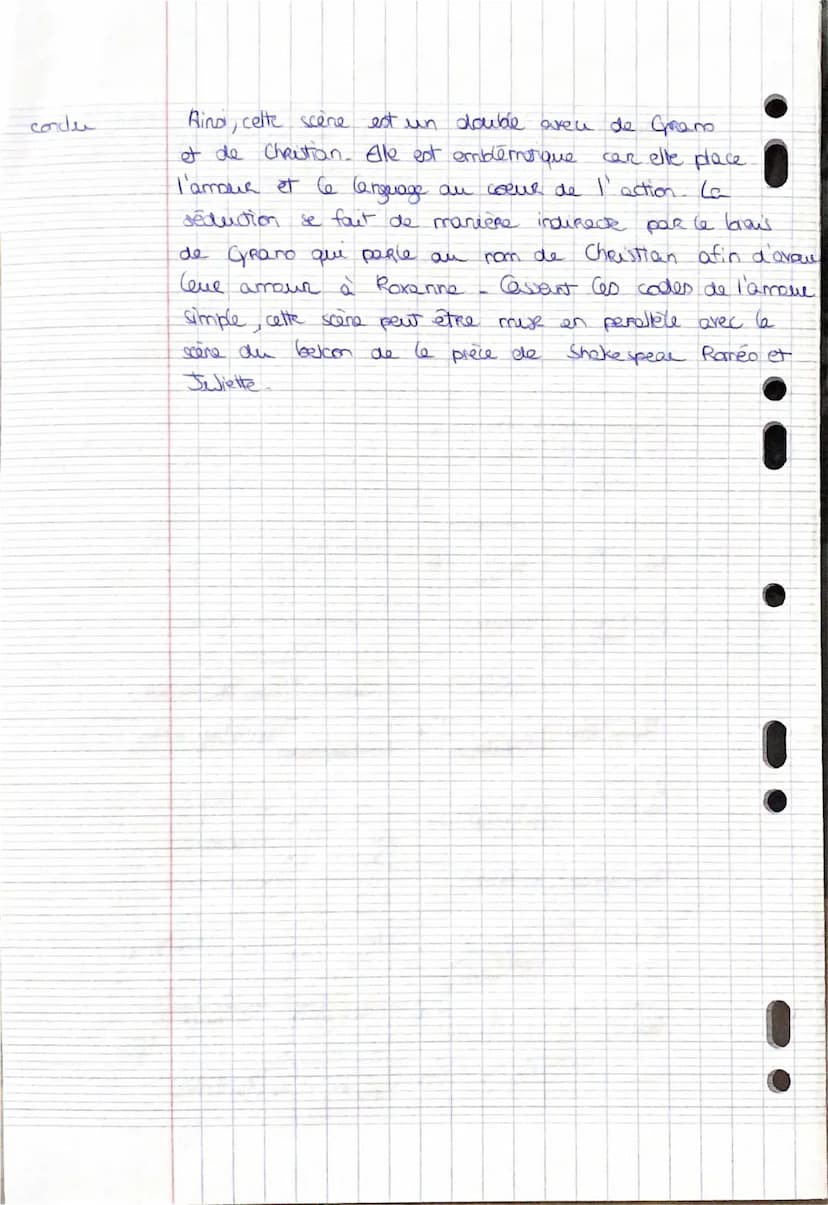 conclu
Ainsi, cette scène est un double aveu de Cyrano
et de Christian. Elle est emblémorique car elle place
l'amour et le language au coeur de l'action. La
séduction se fait de manière indirecte par le biais
de Cyrano qui parle au nom de Christian afin d'avouer
leur amour à Roxanne. Cassant les codes de l'amour
simple, cette scène peut être mise en parallèle avec la
scène du balcon de la pièce de Shakespear Roméo et
Juliette.